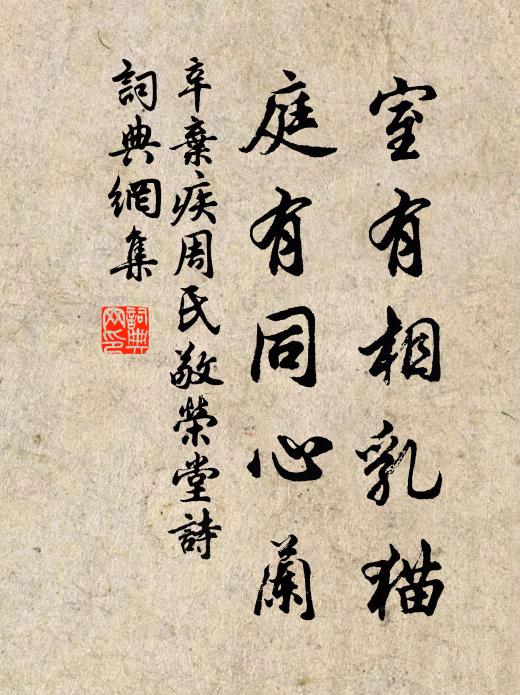 室有相乳猫
庭有同心蘭
辛棄疾周氏敬榮堂詩
詞典網集
詞典網印